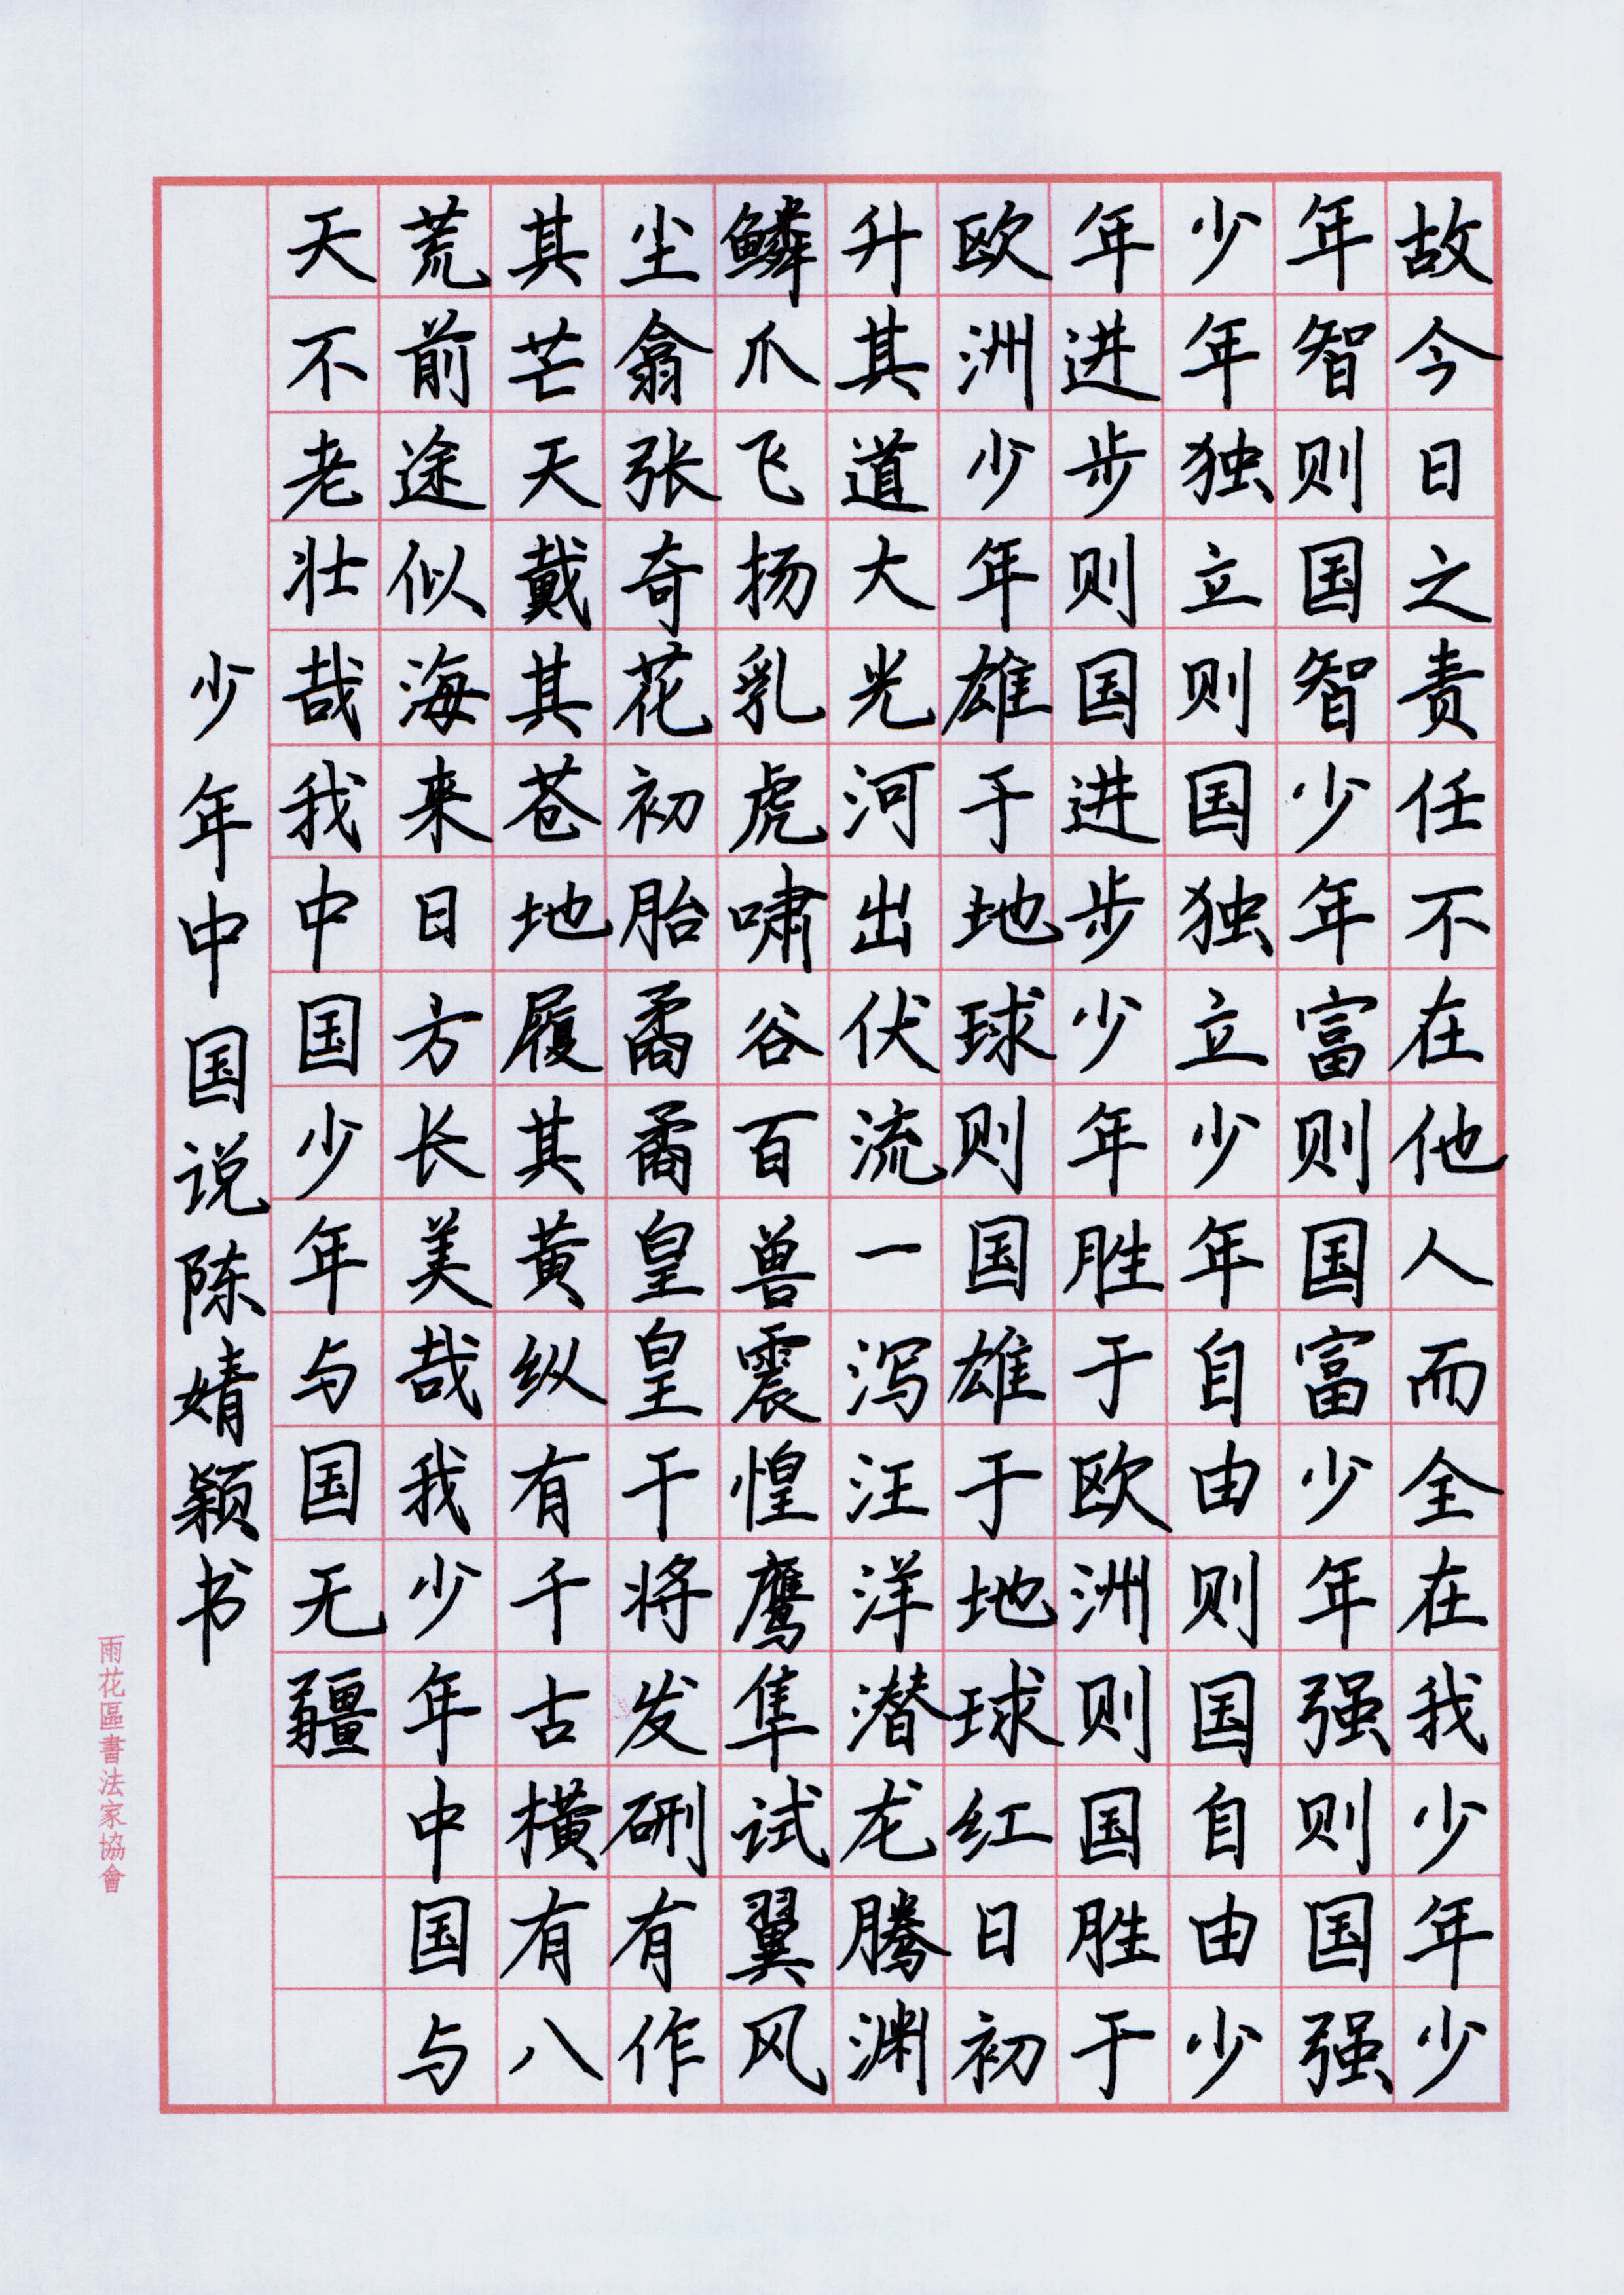 故今日之责任不在他人而全在我少年少
年智则国智少年富则国富少年强则国强
少年独立则国独立少年自由则国自由少
年进步则国进步少年胜于欧洲则国胜于
欧洲少年雄于地球则国雄于地球红日初
升其道大光河出伏流一泻汪洋潜龙腾渊
鳞爪飞扬乳虎啸谷百兽震惶鹰隼试翼风
尘翕张奇花初胎矞矞皇皇干将发硎有作
其芒天戴其苍地履其黄纵有千古横有八
荒前途似海来日方长美哉我少年中国与
天不老壮哉我中国少年与国无疆
少年中国说陈婧颖书
雨花區書法家協會